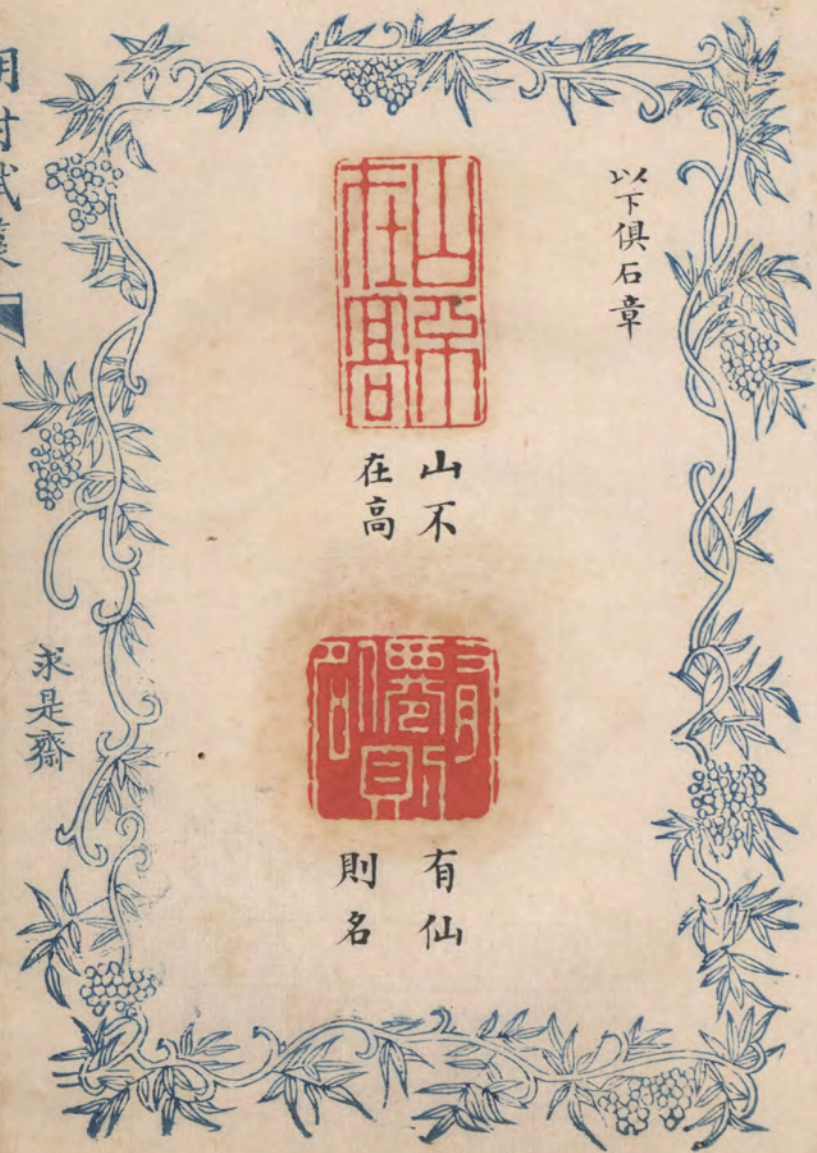 以下俱石章
山不
在高
山不
在高
有
僊則
名
有仙
則名
求是齋